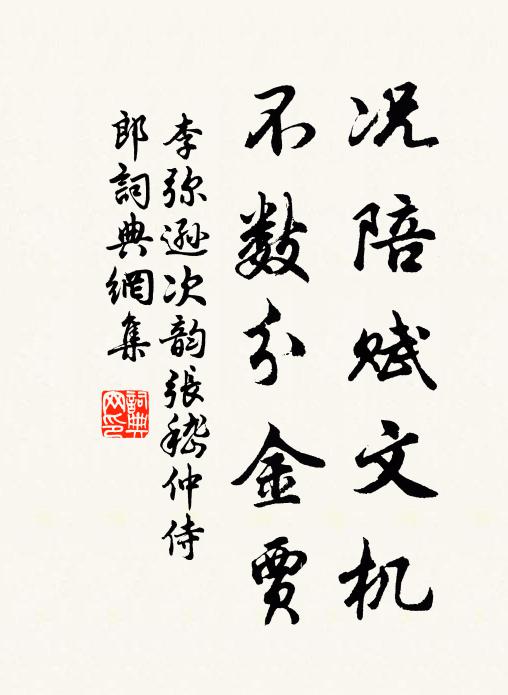 况陪赋文机
不数分金贾
李弥逊次韵張嵇仲侍
郎詞典網集
詞典
网印